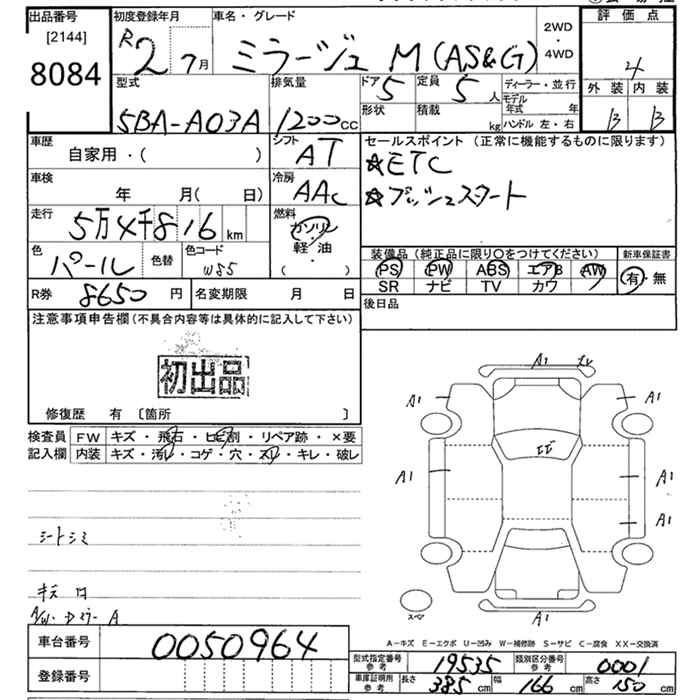 出品番号
[2144]
8084
初度登録年月
R2 7月
車名・グレード
ミラージュ M (AS&G)
2WD
・
4WD
評価点
4
外装 内装
B B
型式
5BA-A03A
排気量
1200cc
ドア 5
形状
定員 5人
積載 kg
ディーラー・並行
モデル年式 年
ハンドル 左・右
車歴
自家用・( )
シフト
AT
セールスポイント (正常に機能するものに限ります)
☆ETC
☆プッシュスタート
車検
年 月( 日)
冷房
AAC
走行
5万4千816 km
燃料
ガソリン
軽・油
( )
色
パール
色替
色コード
W85
装備品 (純正品に限り○をつけてください)
PS PW ABS エアB AW
SR ナビ TV カワ
新車保証書
有・無
R券 8650円
名変期限 月 日
後日品
注意事項申告欄 (不具合内容等は具体的に記入して下さい)
初出品
修復歴 有 〔箇所 〕
検査員
記入欄
FW キズ・飛石・ヒビ割・リペア跡・×要
内装 キズ・汚レ・コゲ・穴・スリ・キレ・破レ
シートシミ
A/W・Dミラー A
A1
A1
A1
エビ
A1
A1
A1
A1
スペア
A1
A-キズ E-エクボ U-凹み W-補修跡 S-サビ C-腐食 XX-交換済
車台番号 0050964
登録番号
型式指定番号 参考 19535
類別区分番号 参考 0001
車庫証明用 参考 長さ 385cm 幅 166cm 高さ 150cm